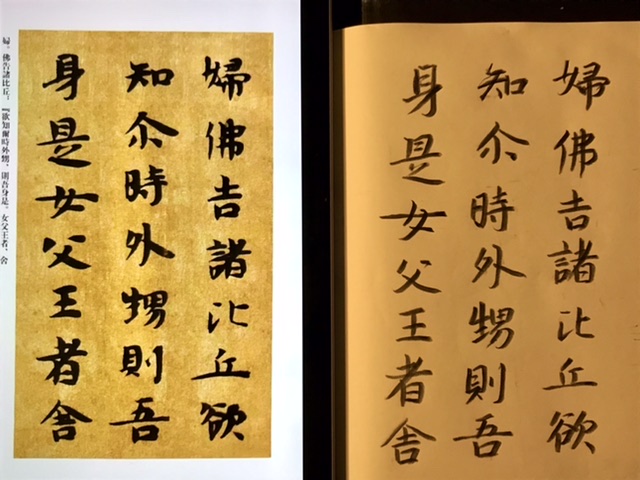 婦佛告諸比丘欲
知尒時外甥則吾
身是女父王者舍
婦。佛告諸比丘：『欲知爾時外甥，則吾身是。女父王者，舍
婦佛告諸比丘欲
知尒時外甥則吾
身是女父王者舍